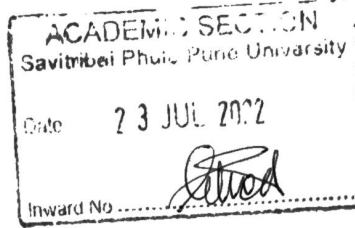 ACADEMIC SECTION
Savitribai Phule Pune University
Date 23 JUL 2022
Inward No